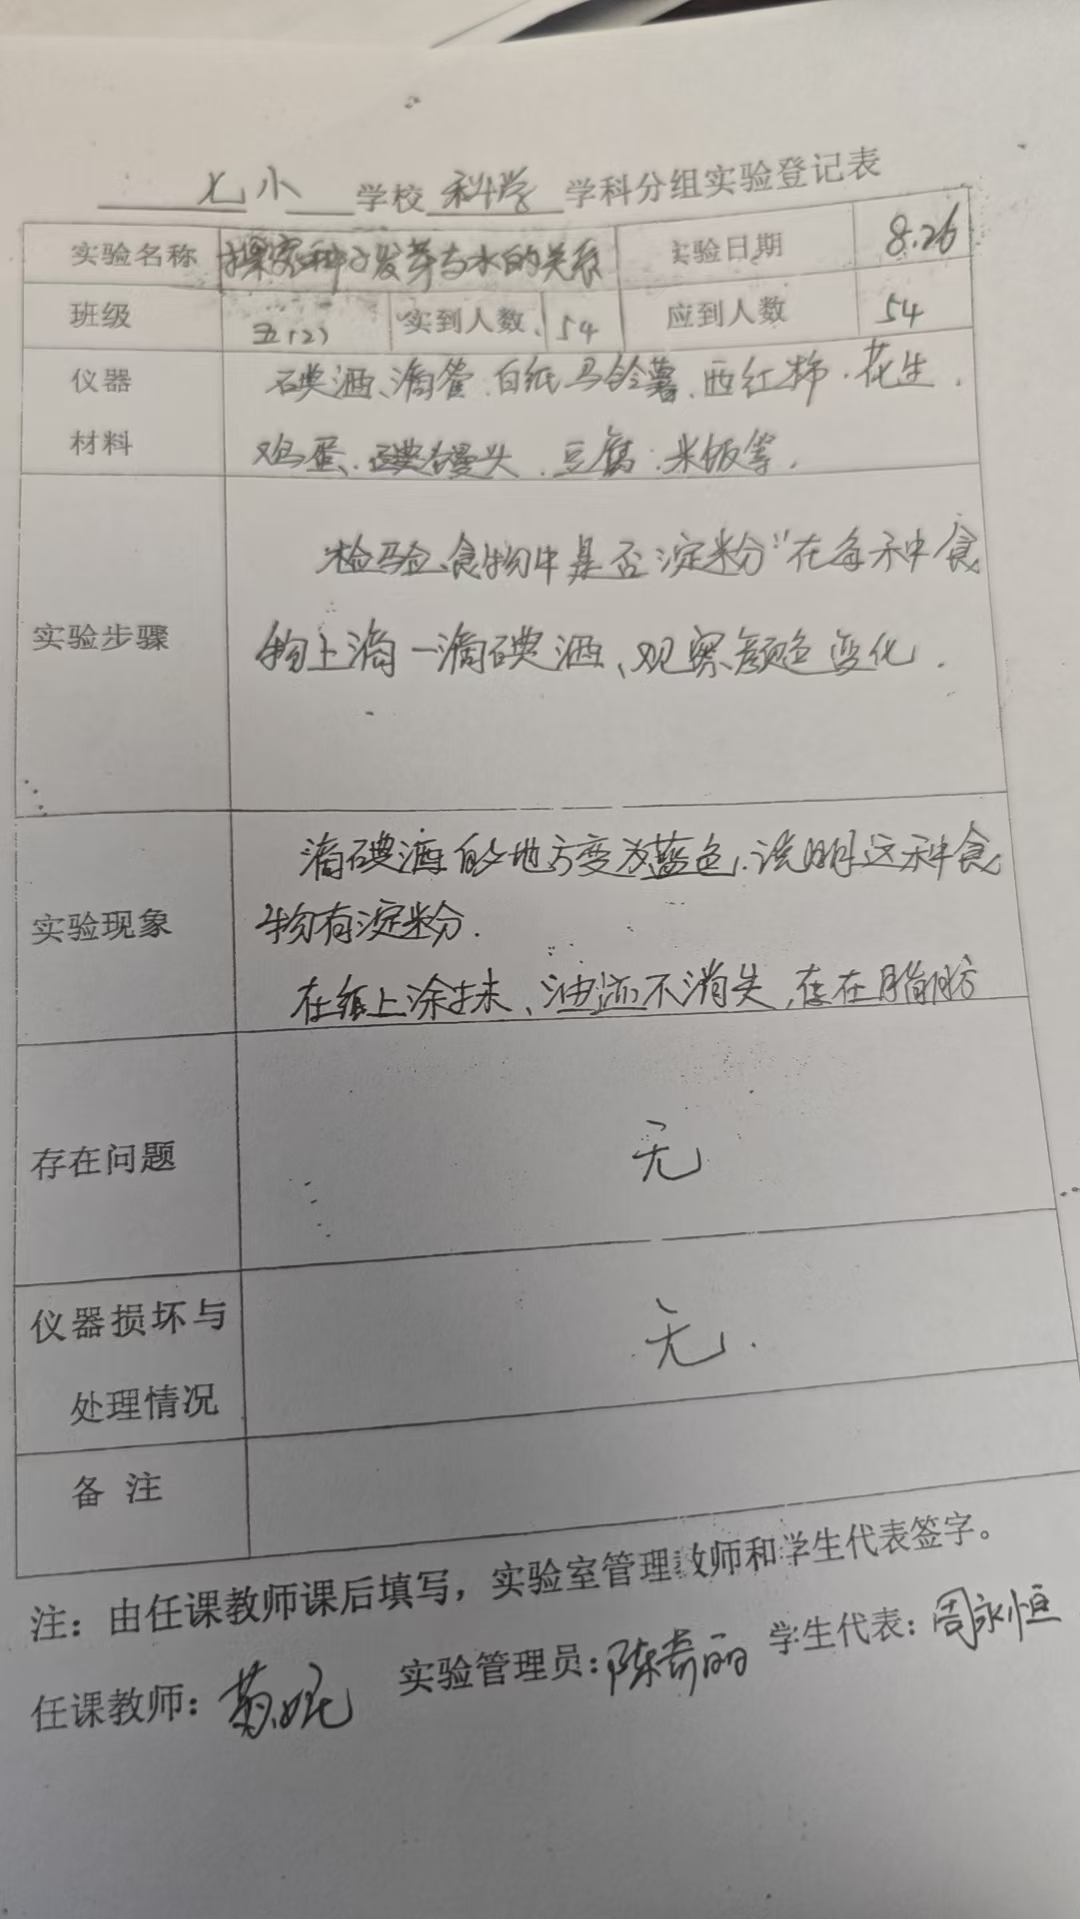 七小 学校 科学 学科分组实验登记表
实验名称 探究种子发芽与水的关系 实验日期 8.26
班级 五(2) 实到人数 54 应到人数 54
仪器 碘酒、滴管、白纸、马铃薯、西红柿、花生、
材料 鸡蛋、馒头、豆腐、米饭等.
检验食物中是否淀粉"在每种食
实验步骤
物上滴一滴碘酒、观察颜色变化.
滴碘酒的地方变为蓝色、说明这种食
实验现象 物有淀粉.
在纸上涂抹、油迹不消失、存在脂肪
存在问题 无
仪器损坏与 无.
处理情况
备 注
注：由任课教师课后填写，实验室管理教师和学生代表签字。
任课教师： 实验管理员：陈 丽 学生代表：周永恒